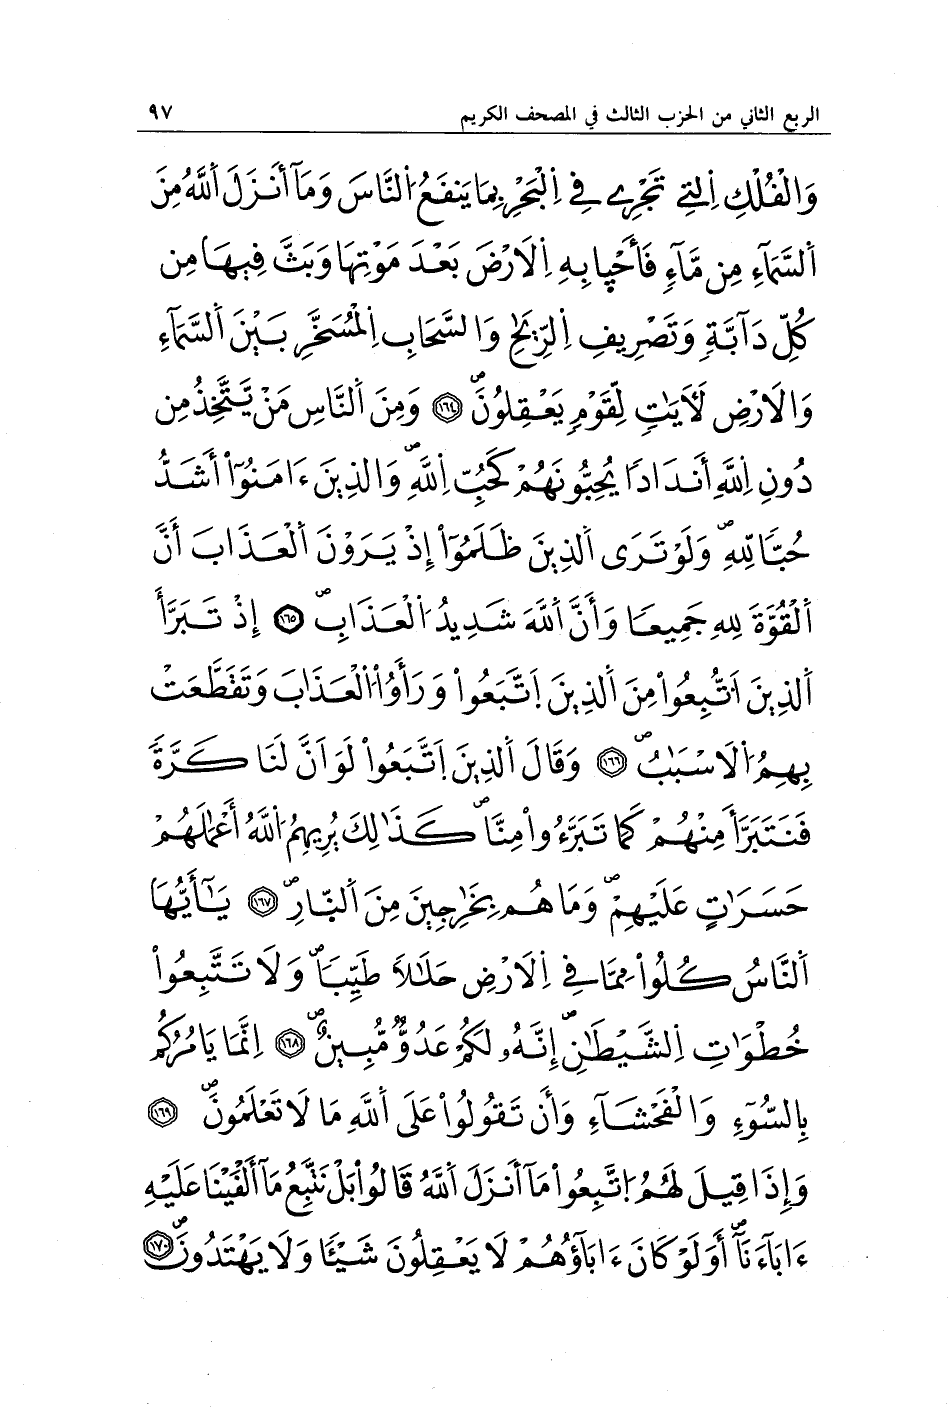 الربع الثاني من الحزب الثالث في المصحف الكريم ٩٧
وَالْفُلْكِ اِلتِے تَجْرِے فِے اِلْبَحْرِ بِمَا يَنفَعُ اُلنَّاسَ وَمَآ أَنزَلَ اَللَّهُ مِنَ
اَلسَّمَآءِ مِن مَّآءٍ فَأَحْيا بِهِ اِلَارْضَ بَعْدَ مَوْتِهَا وَبَثَّ فِيهَا مِن
كُلِّ دَآبَّةٍ وَتَصْرِيفِ اِلرِّيَٰحِ وَالسَّحَابِ اِلْمُسَخَّرِ بَيْنَ اَلسَّمَآءِ
وَالَارْضِ لَأٓيَٰتٍ لِّقَوْمٍ يَعْقِلُونَۖ ١٦٤ وَمِنَ اَلنَّاسِ مَنْ يَّتَّخِذُ مِن
دُونِ اِللَّهِ أَندَاداً يُحِبُّونَهُمْ كَحُبِّ اِللَّهِۖ وَالذِينَ ءَامَنُوٓاْ أَشَدُّ
حُبّاً لِّلهِۖ وَلَوْ تَرَى اَلذِينَ ظَلَمُوٓاْ إِذْ يَرَوْنَ اَلْعَذَابَ أَنَّ
اَلْقُوَّةَ لِلهِ جَمِيعاً وَأَنَّ اَللَّهَ شَدِيدُ اُلْعَذَابِۖ ١٦٥ إِذْ تَبَرَّأَ
اَلذِينَ اَتُّبِعُواْ مِنَ اَلذِينَ اَتَّبَعُواْ وَرَأَوُاْ اُلْعَذَابَ وَتَقَطَّعَتْ
بِهِمُ اُلَاسْبَٰبُۖ ١٦٦ وَقَالَ اَلذِينَ اَتَّبَعُواْ لَوَ اَنَّ لَنَا كَرَّةً
فَنَتَبَرَّأَ مِنْهُمْ كَمَا تَبَرَّءُواْ مِنَّاۖ كَذَٰلِكَ يُرِيهِمُ اُللَّهُ أَعْمَٰلَهُمْ
حَسَرَٰتٍ عَلَيْهِمْۖ وَمَا هُم بِخَٰرِجِينَ مِنَ اَلنّارِۖ ١٦٧ يَٰٓأَيُّهَا
اَلنَّاسُ كُلُواْ مِمَّا فِے اِلَارْضِ حَلَٰلًا طَيِّباًۖ وَلَا تَتَّبِعُواْ
خُطْوَٰتِ اِلشَّيْطَٰنِۖ إِنَّهُۥ لَكُمْ عَدُوٌّ مُّبِينٌۖ ١٦٨ اِنَّمَا يَامُرُكُم
بِالسُّوٓءِ وَالْفَحْشَآءِ وَأَن تَقُولُواْ عَلَى اَللَّهِ مَا لَا تَعْلَمُونَۖ ١٦٩
وَإِذَا قِيلَ لَهُمُ اُتَّبِعُواْ مَآ أَنزَلَ اَللَّهُ قَالُواْ بَلْ نَتَّبِعُ مَآ أَلْفَيْنَا عَلَيْهِ
ءَابَآءَنَآۖ أَوَلَوْ كَانَ ءَابَآؤُهُمْ لَا يَعْقِلُونَ شَيْـٔاً وَلَا يَهْتَدُونَۖ ١٧٠